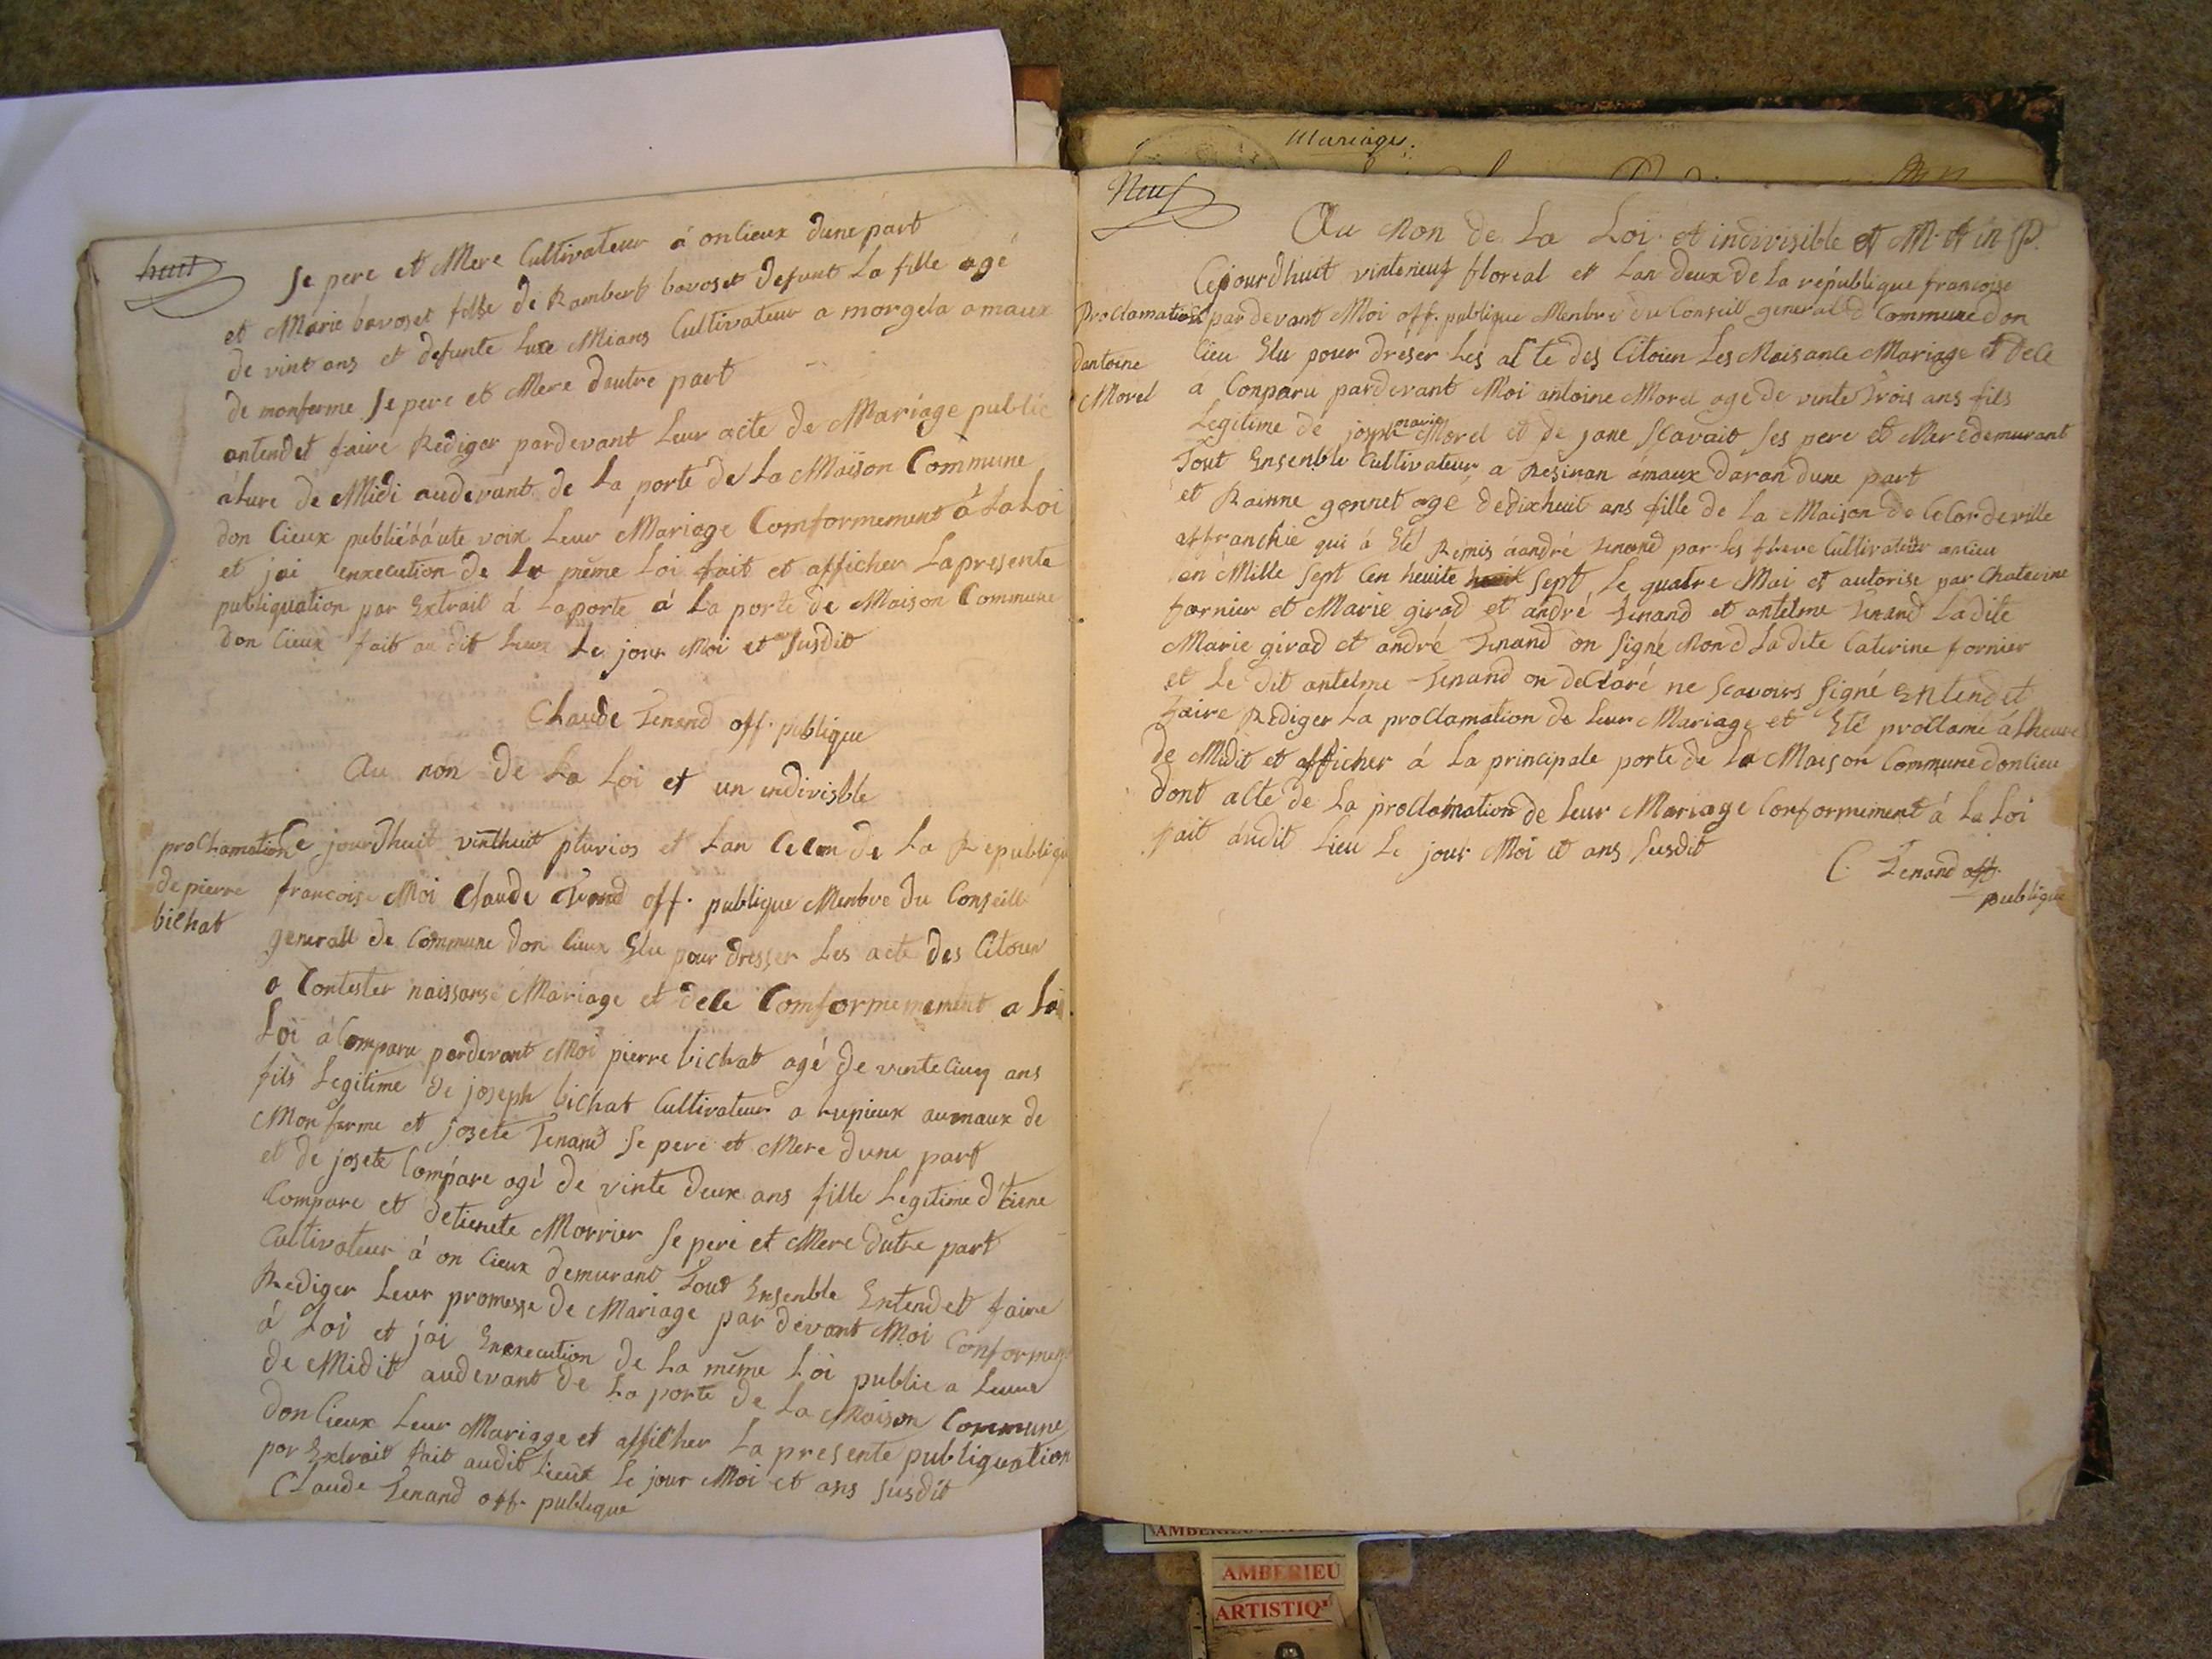 huit
Se pere et Mere Cultivateur á onlieux dune part
et Marie bavozet fille de Rambert bavoset defunt La fille agé
de vint ans et defunte Luse Mians Cultivateur a morgela amaux
de monferme Se pere et Mere dautre part
antendet faire Rediger pardevant Leur acte de Mariage public
álure de Midi audevant de La porte de La Maison Commune
don Cieux publié á áute voix Leur Mariage Comformement á La Loi
et jai enxecution de La même Loi fait et afficher La presente
publiquation par Extrait á Laporte á La porte de Maison Commune
don Cieux fait au dit Lieux Le jour Moi et an Susdit
Claude Tenand off. publique
Au non de La Loi et un indivisble
proclamation
de pierre
bichat
Ce jourdhuit vinthuit pluvios et Lan Cecon de La Republique
francoise Moi Claude Tenand off. publique Menbre du Conseill
generall de Commune don Cieux Elu pour dresser Les acte des Citoien
a Contester naissanse Mariage et dece Comformemement a La
Loi á Comparu pardevant Moi pierre bichat agé de vintecinq ans
fils Legitime de joseph bichat Cultivateur a rupieux aumaux de
Monferme et josete Tenand Se pere et Mere dune part
et de josete Compare agé de vinte deux ans fille Legitime d'tiene
Compare et detienete Morrier Se pere et Mere dutre part
Cultivateur á on Cieux demurant Tout Ensenble Entendet faire
Rediger Leur promesse de Mariage par devant Moi Conformem
á Loi et jai Enexecution de La même Loi public a Leure
de Midit audevant de La porte de La Maison Commune
don Cieux Leur Mariage et afficher La presente publiquation
por Extrait fait audit Lieux Le jour Moi et ans Susdit
Claude Tenand off. publique
Mariages.
Neuf
Au Non de La Loi et indivisible et M. et in P.
Proclamation
dantoine
Morel
Cejourdhuit vinteneuf floreal et Lan deux de La république francoise
pardevant Moi off. publique Menbre du Conseill general d Commune don
lieu Elu pour dréser Les acte des Citoien Les Naisance Mariage et dece
a Conparu pardevant Moi antoine Morel age de vinte Trois ans fils
Legitime de joseph marie Morel et de jane Scavait ses pere et Mere demurant
Tout Ensenble Cultivateur a Resinan ámaux daran dune part
et Rainne gonnet agé dedixheuit ans fille de La Maison de Celordeville
affranchie qui á Eté Remis áandré Tenand par Les freve Cultivateur onlieu
en Mille Sept Cen heuite Sept Le quatre Mai et autorise par Chaterine
fornier et Marie girod et andré Tenand et antelme Tenand Ladite
Marie girad et andré Tenand on Signé Non d Ladite Caterine fornier
et Le dit antelme Tenand on declaré ne Scavoirs Signé Entendet
faire Rediger La proclamation de Leur Mariage et Eté proclamé á Lheure
de Midit et afficher á La principale porte de La Maison Commune donlieu
dont acte de La proclamation de Leur Mariage Conformement á La Loi
fait audit Lieu Le jour Moi et ans Susdit
C. Tenand off.
publique
AMBERIEU
ARTISTIQ